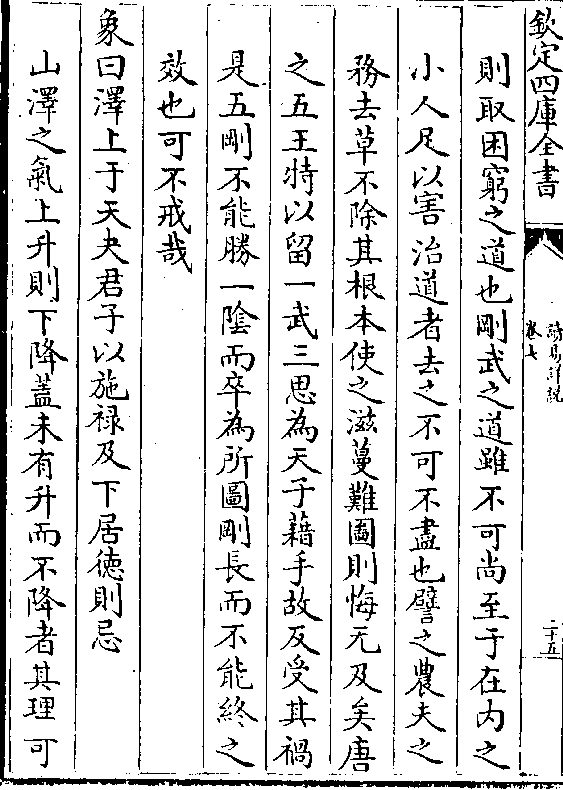 欽定四庫全書
讀易詳說
卷七
二十五
則取困窮之道也剛武之道雖不可尚至于在内之
小人足以害治道者去之不可不盡也譬之農夫之
務去草不除其根本使之滋蔓難圖則悔无及矣唐
之五王特以留一武三思為天子藉手故反受其禍
是五剛不能勝一陰而卒為所圖剛長而不能終之
效也可不戒哉
象曰澤上于天夬君子以施禄及下居徳則忌
山澤之氣上升則下降蓋未有升而不降者其理可